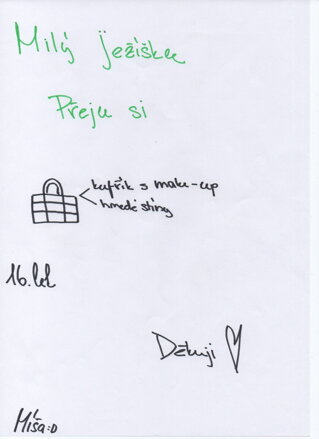 Milý ježíšku
Přeju si
kufřík s make-up
hnedé stíny
16.let
Děkuji
Míša:D